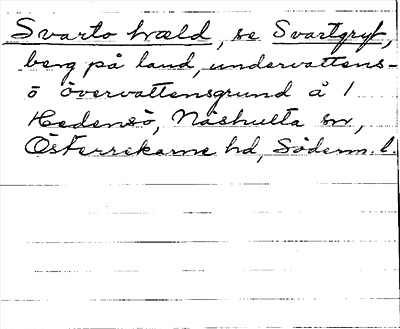 Svarto hæld, se Svartgryt,
berg på land, undervattens-
o övervattensgrund å 1
Hedensö, Näshulta sn,
Österrekarne hd, Söderm. l.